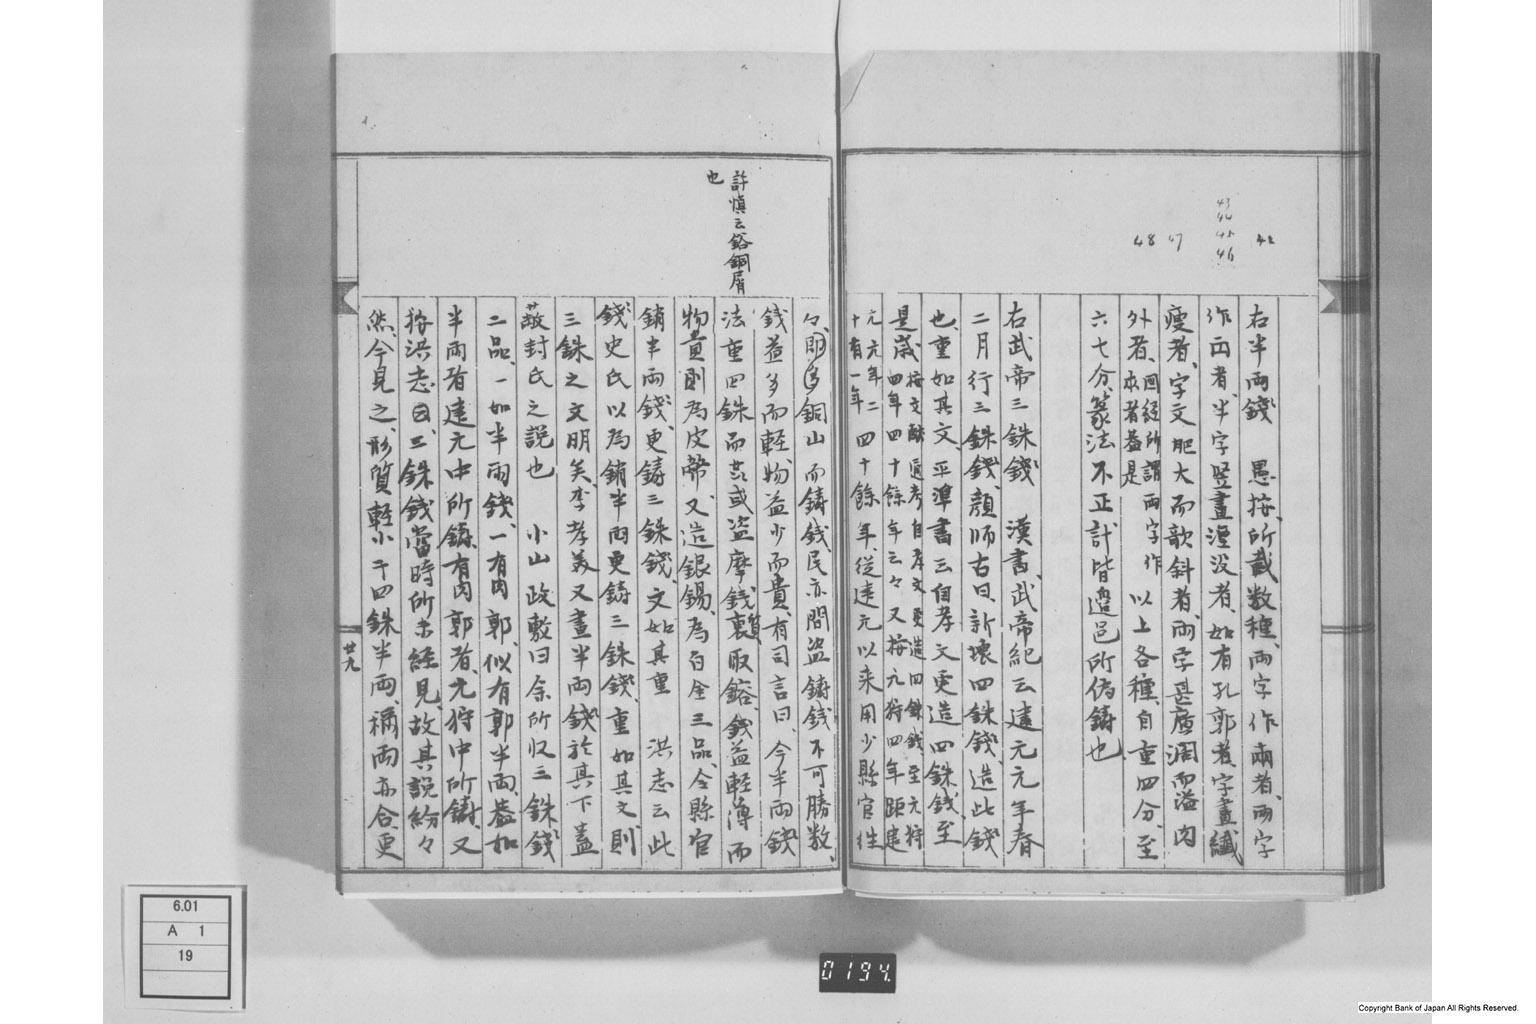 42
43
44
45
46
47
48
右半両錢 愚按、所載数種、両字作兩者、両字
作両者、半字竪畫湮没者、如有孔郭者、字畫纖
瘦者、字文肥大而歌斜者、両字甚廣濶而溢肉
外者、図經所謂両字作
本者蓋是 以上各種、自重四分、至
六七分、篆法不正計皆邊邑所偽鋳也
右武帝三銖錢 漢書、武帝紀云建元元年春
二月行三銖錢、顔師古曰、新壊四銖錢、造此錢
也、重如其文、平準書云自孝文更造四銖錢、至
是歳 按文献通考自孝文更造四銖錢至元狩
四年四十餘年云々又按元狩四年距建
元元年二
十有一年 四十餘年、從建元以来用少縣官往
々、即多銅山而鋳錢、民亦間盗鋳錢不可勝数、
錢益多而軽、物益少而貴、有司言曰、今半両錢
法重四銖而或盗摩錢裏取鎔、錢益軽薄而
物貴則為皮幣、又造銀錫、為白金三品、令縣官
銷半両錢、更鋳三銖錢、文如其重 洪志云此
錢、史氏以為銷半両更鋳三銖錢、重如其文則
三銖之文明矣、李孝美又畫半両錢於其下蓋
蔽封氏之説也 小山政敷曰余所収三銖錢
二品、一如半両錢、一有肉郭、似有郭半両、蓋如
半両者建元中所鋳、有肉郭者、元狩中所鋳、又
按洪志曰、三銖錢當時所未經見、故其説紛々
然、今見之、形質軽小于四銖半両、稱両亦合更
許慎云鎔銅屑
也
廿九
6.01
A 1
19
0194
Copyright Bank of Japan All Rights Reserved.